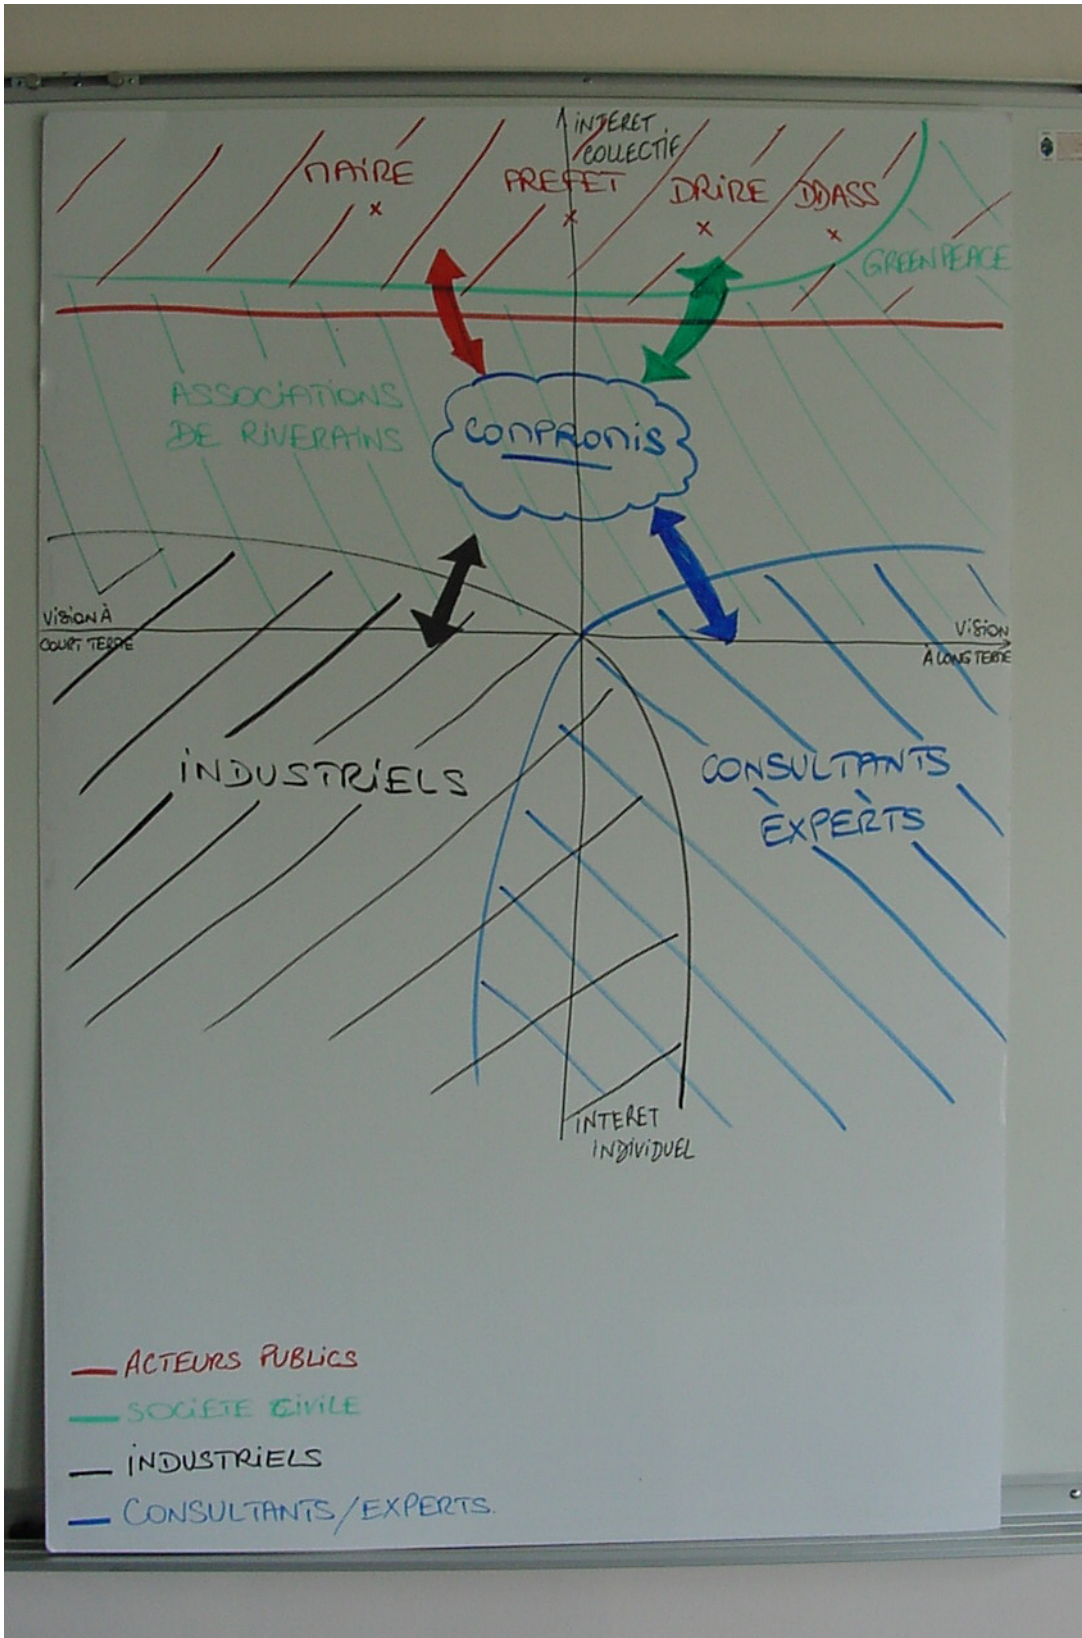 INTERET
COLLECTIF
MAIRE
PREFET
DRIRE
DDASS
x
x
x
x
GREENPEACE
ASSOCIATIONS
DE RIVERAINS
COMPROMIS
VISION À
COURT TERME
VISION
À LONG TERME
INDUSTRIELS
CONSULTANTS
EXPERTS
INTERET
INDIVIDUEL
ACTEURS PUBLICS
SOCIETE CIVILE
INDUSTRIELS
CONSULTANTS/EXPERTS.